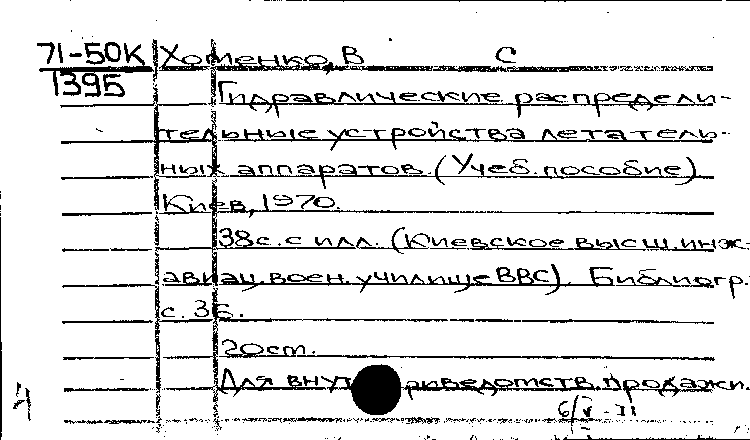 71-50К Хоменко, В С
1395
Гидравлические распредели-
тельные устройства летатель-
ных аппаратов. (Учеб. пособие)
Киев, 1970.
38с. с илл. (Киевское высш. инж-
авиац. воен. училище ВВС). Библиогр.:
с. 36.
20см.
Для внут риведомств. продажи.
6/V-71